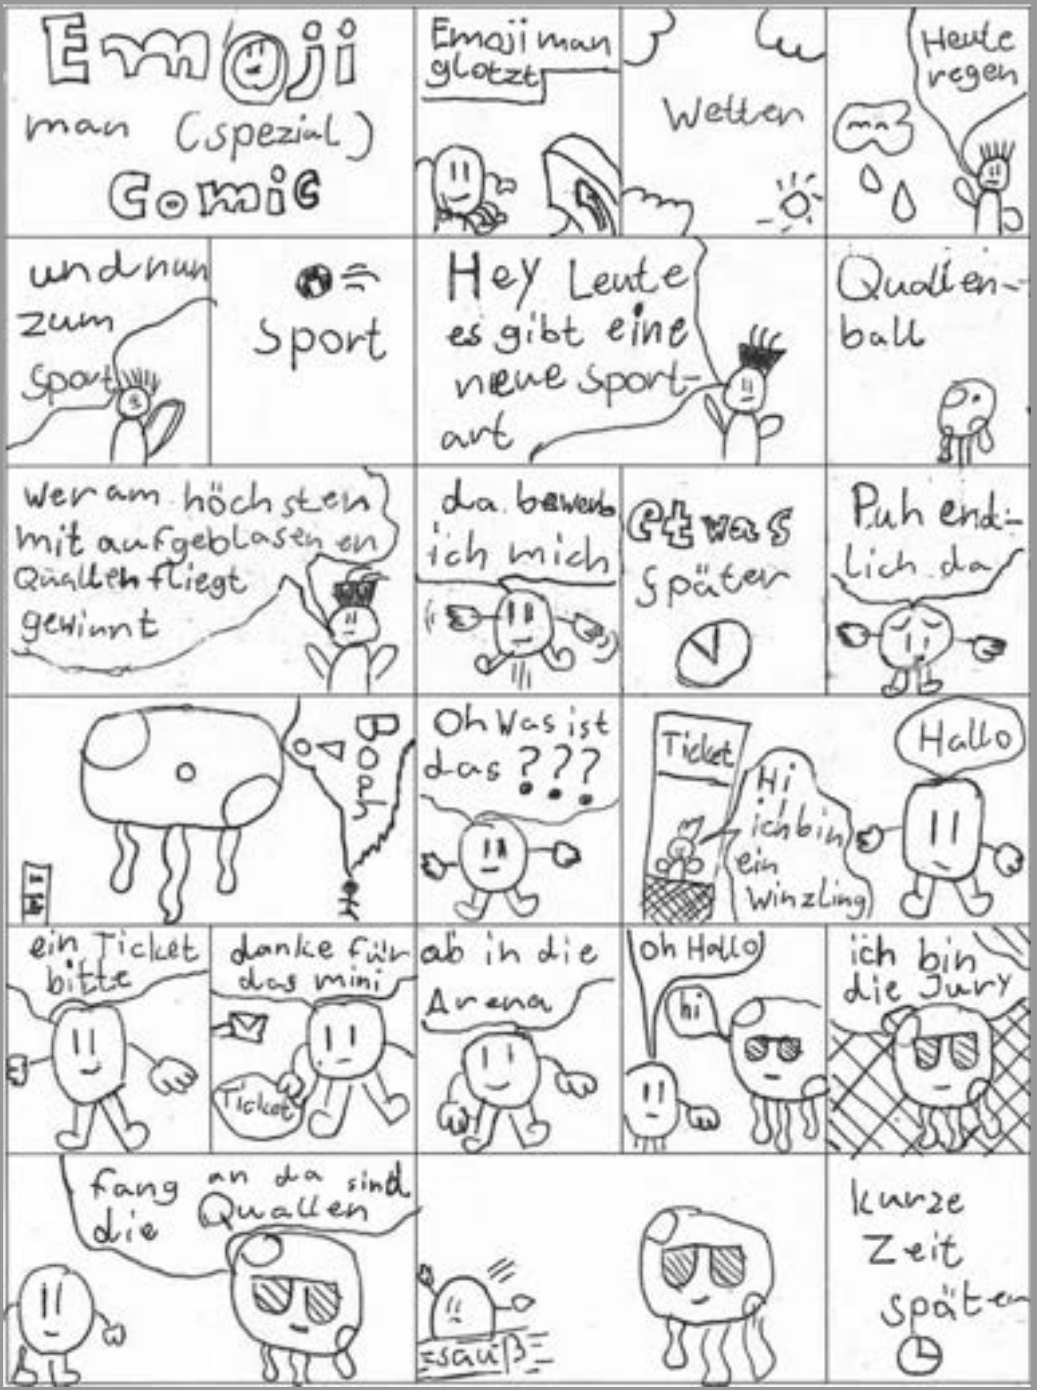 Emoji
man (spezial)
Comic
Emoji man
glotzt
Wetter
Heute
regen
und nun
zum
Sport
Sport
Hey Leute
es gibt eine
neue Sport-
art
Quallen-
ball
wer am höchsten
mit aufgeblasenen
Quallen fliegt
gewinnt
da bewerb
ich mich
etwas
später
Puh end-
lich da
Boah
Oh was ist
das ???
Ticket
Hi
ich bin
ein
Winzling
Hallo
ein Ticket
bitte
danke für
das mini
Ticket
ab in die
Arena
oh Hallo
hi
ich bin
die Jury
fang an da sind
die Quallen
sauß
kurze
Zeit
später